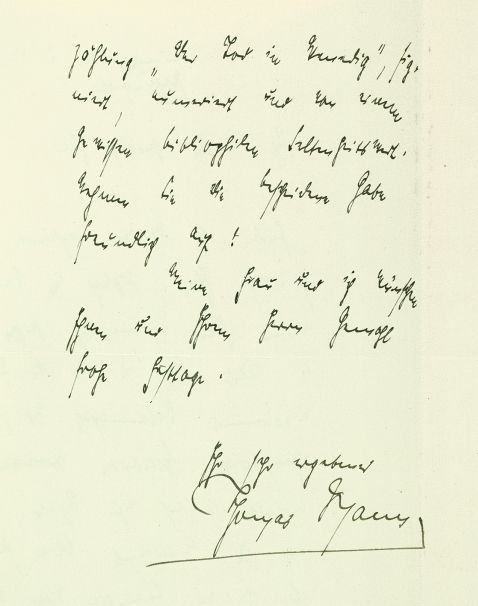 zählung „Der Tod in Venedig", sig-
niert, numeriert und von einem
gewissen bibliophilen Seltenheitswert.
Nehmen Sie die bescheidene Gabe
freundlich auf!
Meine Frau und ich wünschen
Ihnen und Ihrem Herrn Gemahl
frohe Festtage.
Ihr sehr ergebener
Thomas Mann.